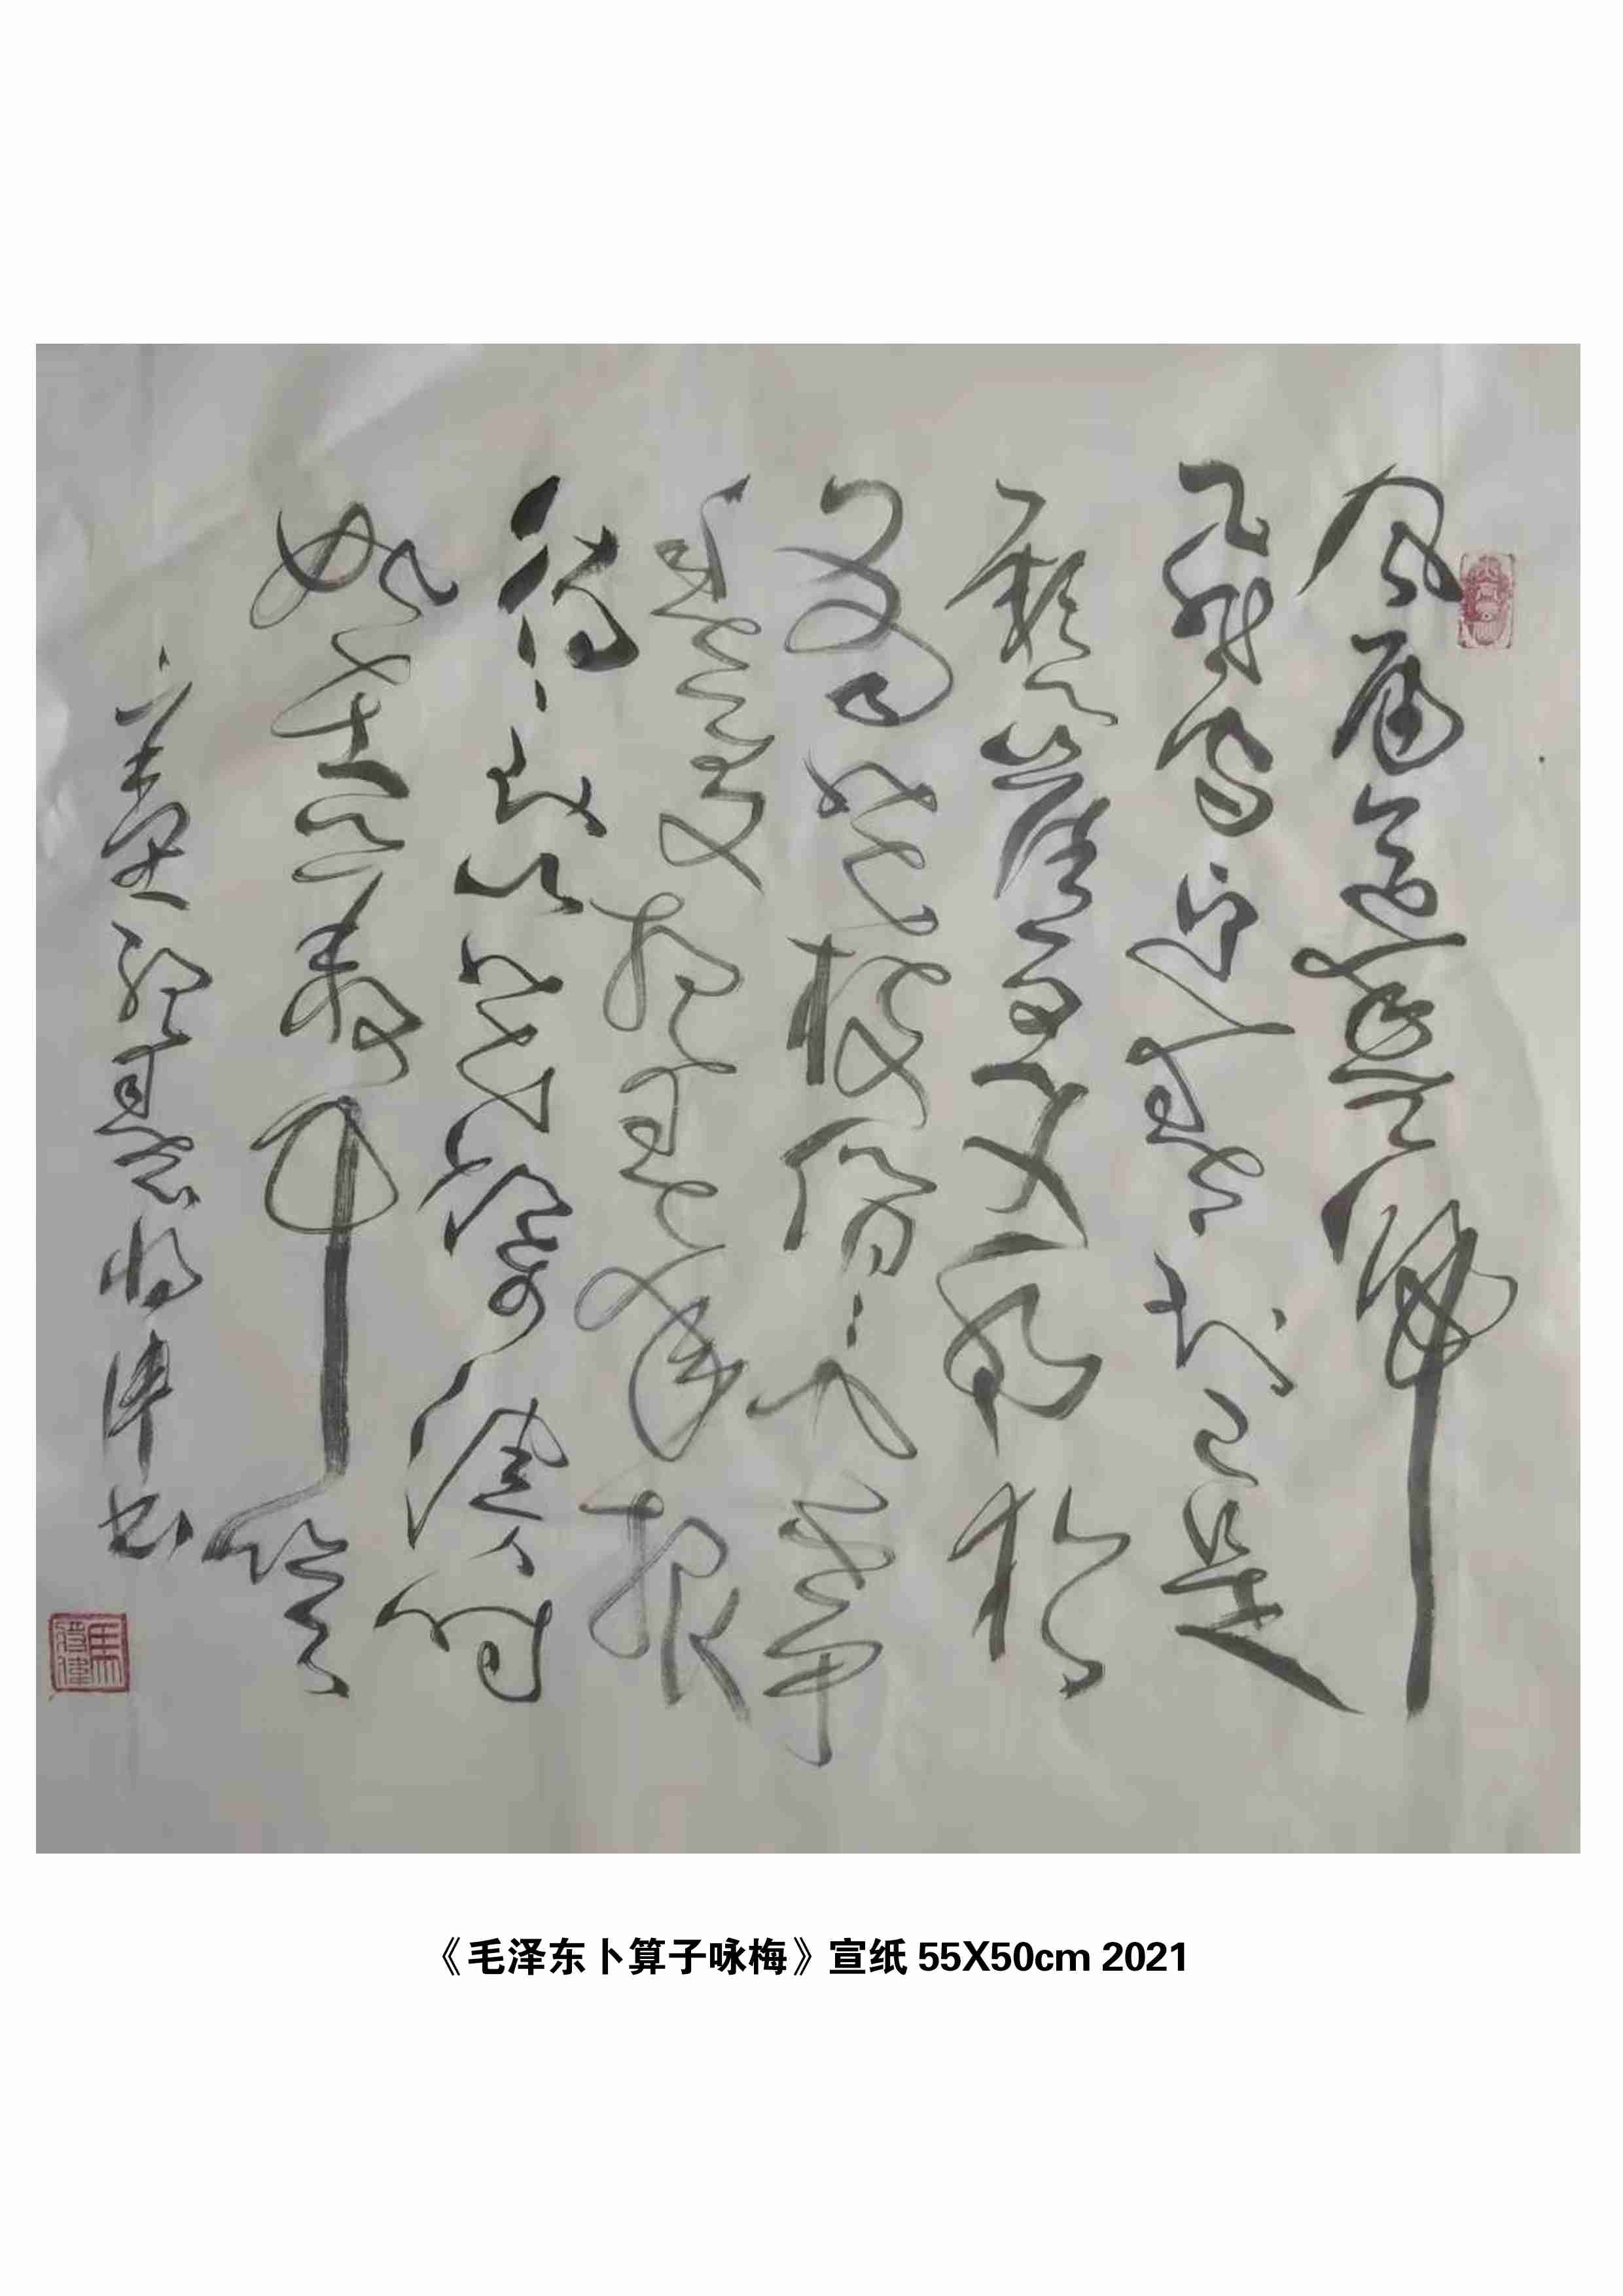 风雨送春归
飞雪迎春到已是
悬崖百丈冰犹
有花枝俏々也不争
春只把春来报
待到山花烂漫时
她在丛中笑
《毛泽东卜算子咏梅》宣纸 55X50cm 2021